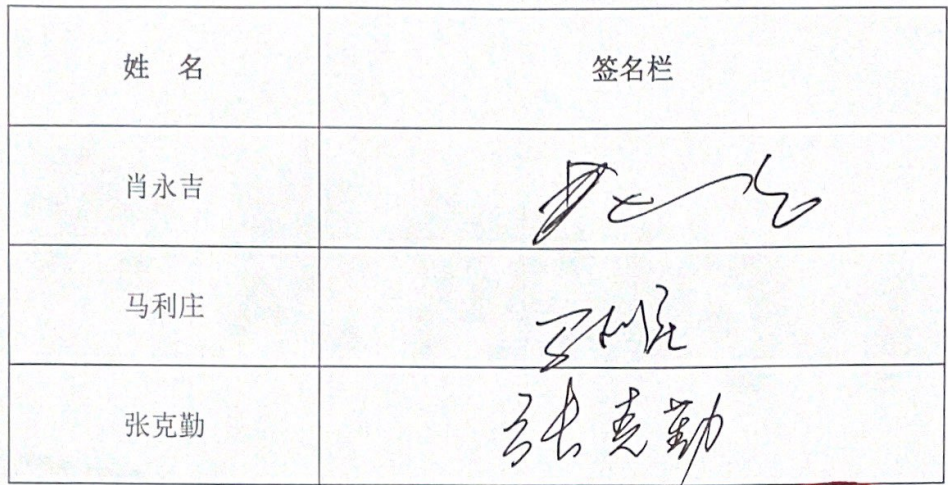 姓 名 签名栏
肖永吉
马利庄
张克勤 张克勤